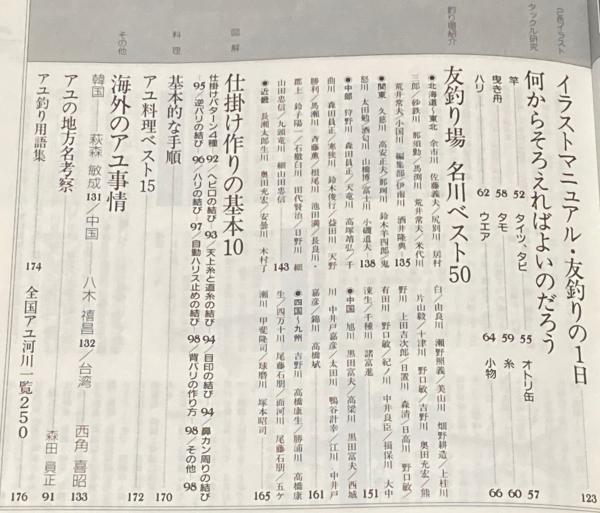 P長イラスト
イラストマニュアル・友釣りの1日 123
タックル研究
何からそろえればよいのだろう
竿 52 タイツ、タビ 55 オトリ缶 57
曳き舟 58 タモ 59 糸 60
ハリ 62 ウエア 64 小物 66
釣り場紹介
友釣り場 名川ベスト50
●北海道〜東北 余市川 佐藤義夫/尻別川 居村
三郎/砂鉄川 那須勲/馬淵川 荒井常夫/米代川
荒井常夫/小国川 編集部/伊南川 酒井隆典 135
●関東 久慈川 高安正夫/那珂川 鈴木羊四郎/鬼
怒川 太田勉/酒匂川 山橋博/富士川 小磯道夫 138
●中部 狩野川 森田員正/天竜川 高塚靖弘/千
曲川 森田員正/寒狭川 鈴木俊行/益田川 天野
勝利/馬瀬川 斉藤薫/根尾川 池田満/長良川・
郡上 鈴子陽一/石徹白川 田代賢治/日野川 細
山田忠信/九頭竜川 細山田忠信 143
●近畿 長瀬太郎生川 奥田充宏/安曇川 木村了
白/由良川 瀬野照義/美山川 畑野耕造/上桂川
片山毅/十津川 野口敏/吉野川 奥田充宏/熊
野川 上田吉次郎/日置川 森清/日高川 野口敏/
有田川 野口敏/紀ノ川 中井良臣/揖保川 大中
溧生/千種川 諸富進 151
●中国 旭川 黒田富夫/高梁川 黒田富夫/西城
川 中井戸嘉彦/太田川 鴨谷計幸/江川 中井戸
嘉彦/錦川 高橋斌 161
●四国〜九州 吉野川 高橋康生/勝浦川 高橋康
生/四万十川 尾藤石朋/面河川 尾藤石朋/五ケ
瀬川 甲斐隆司/球磨川 塚本昭司 165
図解
仕掛け作りの基本10
仕掛けパターン4種 92/ヘビロの結び 93/天上糸と道糸の結び 94/目印の結び 94/鼻カン周りの結び
95/逆バリの結び 96/ハリの結び 97/自動ハリス止めの結び 98/背バリの作り方 98/その他 98
料理
基本的な手順 170
アユ料理ベスト15 172
その他
海外のアユ事情
韓国 萩森敏成 131/中国 八木禧昌 132/台湾 西角喜昭 133
アユの地方名考察 森田員正 91
アユ釣り用語集 174 全国アユ河川一覧250 176